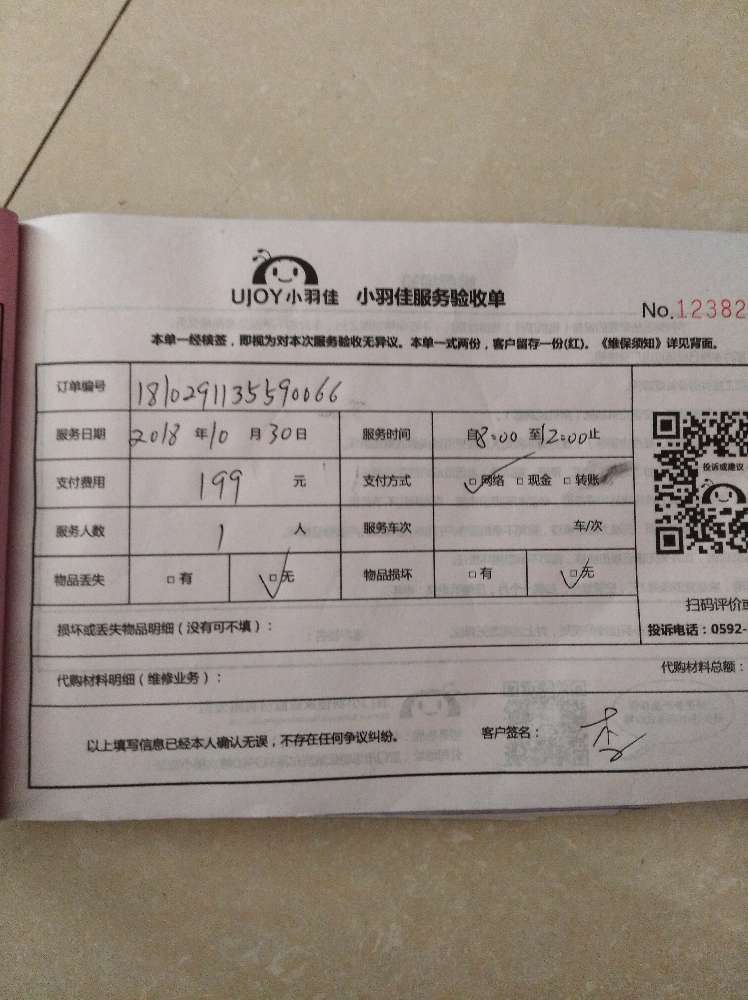 UJOY小羽佳 小羽佳服务验收单
No.12382
本单一经核签,即视为对本次服务验收无异议。本单一式两份,客户留存一份(红)。《维保须知》详见背面。
订单编号 1810291135590066
服务日期 2018年10月30日 服务时间 自8:00至12:00止
支付费用 199 元 支付方式 □网络 □现金 □转账
投诉或建议
服务人数 1 人 服务车次 车/次
物品丢失 □有 □无 物品损坏 □有 □无
扫码评价或
损坏或丢失物品明细(没有可不填):
投诉电话:0592-
代购材料明细(维修业务): 代购材料总额:
以上填写信息已经本人确认无误,不存在任何争议纠纷。 客户签名: